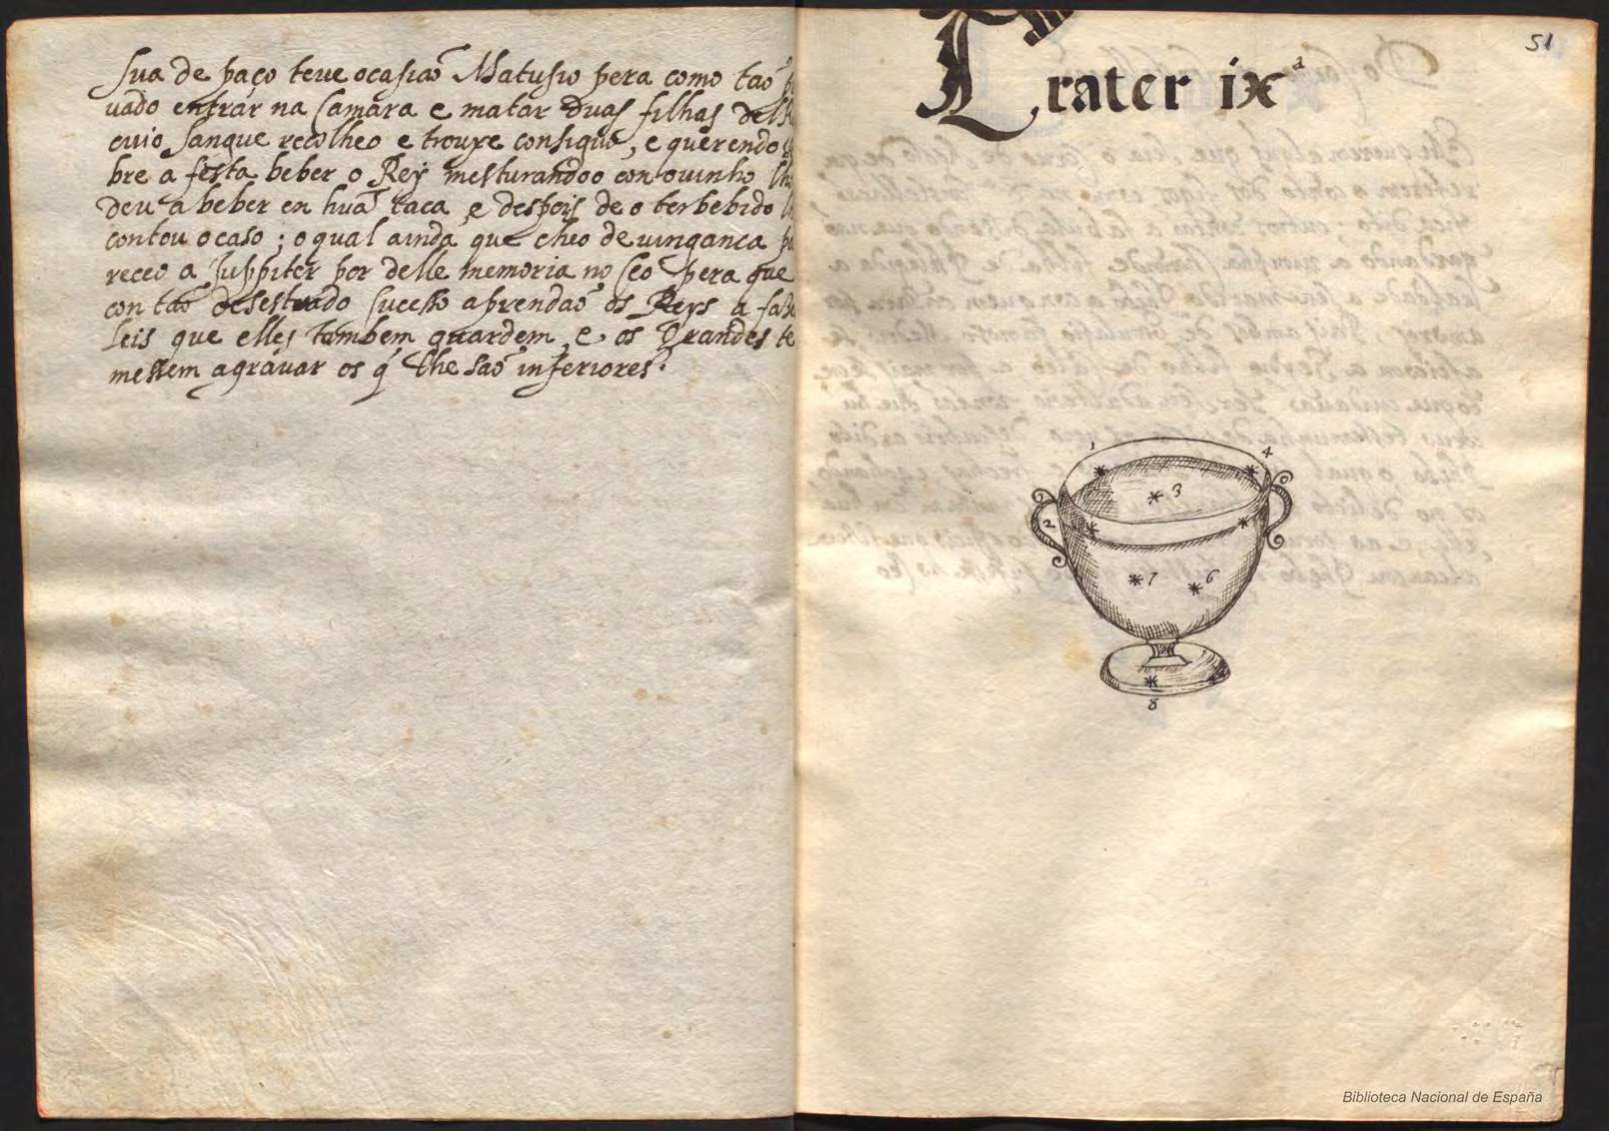 sua de paço teue ocasiaõ Matusio pera como taõ
uado entrar na Camara e matar duas filhas del
cuio sangue recolheo e trouxe consiguo, e querendo
bre a festa beber o Rey mesturandoo con ouinho
deu a beber en huã taca, e despois de o ter bebido
contou o caso; o qual ainda que cheo de uinganca
receo a Juppiter por delle memoria no Ceo pera que
con taõ desestrado sucesso aprendaõ os Reys a
leis que elles tambem guardem, e os Grandes te
messem agrauar os q̃ lhe saõ inferiores.
51
Crater ixª
1
4
3
2
7
6
8
Biblioteca Nacional de España